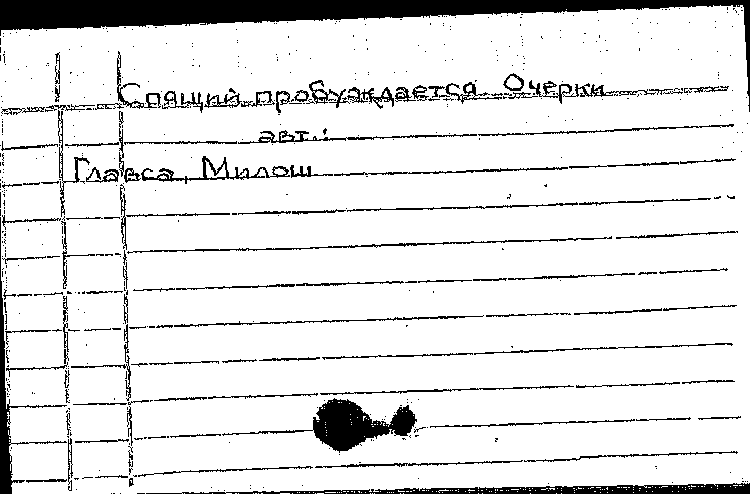 Спящий пробуждается. Очерки
авт.:
Главса, Милош